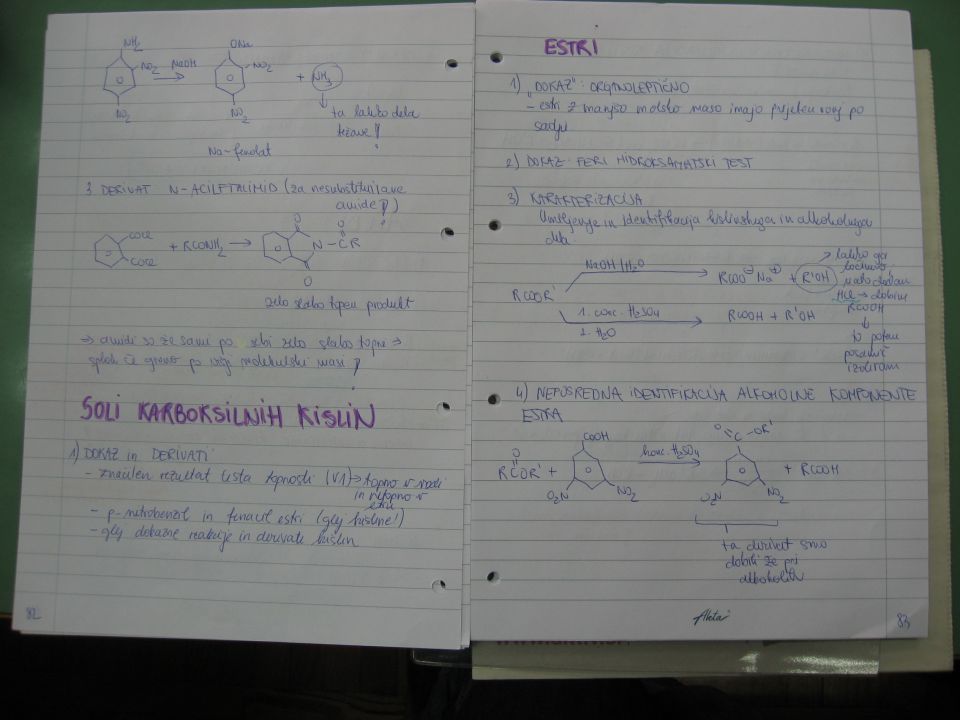 NH2
NO2
NO2
NaOH
ONa
NO2
NO2
+ NH3
ta lahko dela
težave!
Na-fenolat
3. DERIVAT N-ACILFTALIMID (za nesubstituirane
amide!)
COCl
COCl
+ RCONH2
O
N - C R
O
O
zelo slabo topen produkt
⇒ amidi so že sami po sebi zelo slabo topni ⇒
sploh če gremo po višji molekulski masi!
SOLI KARBOKSILNIH KISLIN
1) DOKAZ in DERIVATI
- značilen rezultat testa topnosti (V1) → topno v vodi
in netopno v
etru
- p-nitrobenzil in fenacil estri (glej kisline!)
- glej dokazne reakcije in derivate kislin
82
ESTRI
1) "DOKAZ": ORGANOLEPTIČNO
- estri z manjšo molsko maso imajo prijeten vonj po
sadju
2) DOKAZ: FERI HIDROKSAMATSKI TEST
3) KARAKTERIZACIJA
Umiljenje in identifikacija kislinskega in alkoholnega
dela
RCOOR'
NaOH/H2O
RCOO⊖ Na⊕ + R'OH
→ lahko ga
HCl → dobim
RCOOH
1. conc. H2SO4
2. H2O
RCOOH + R'OH
to potem
izoliram
4) NEPOSREDNA IDENTIFIKACIJA ALKOHOLNE KOMPONENTE
ESTRA
O
RCOR' +
COOH
O2N
NO2
konc. H2SO4
O
C - OR'
O2N
NO2
+ RCOOH
ta derivat smo
dobili že pri
alkoholih
83